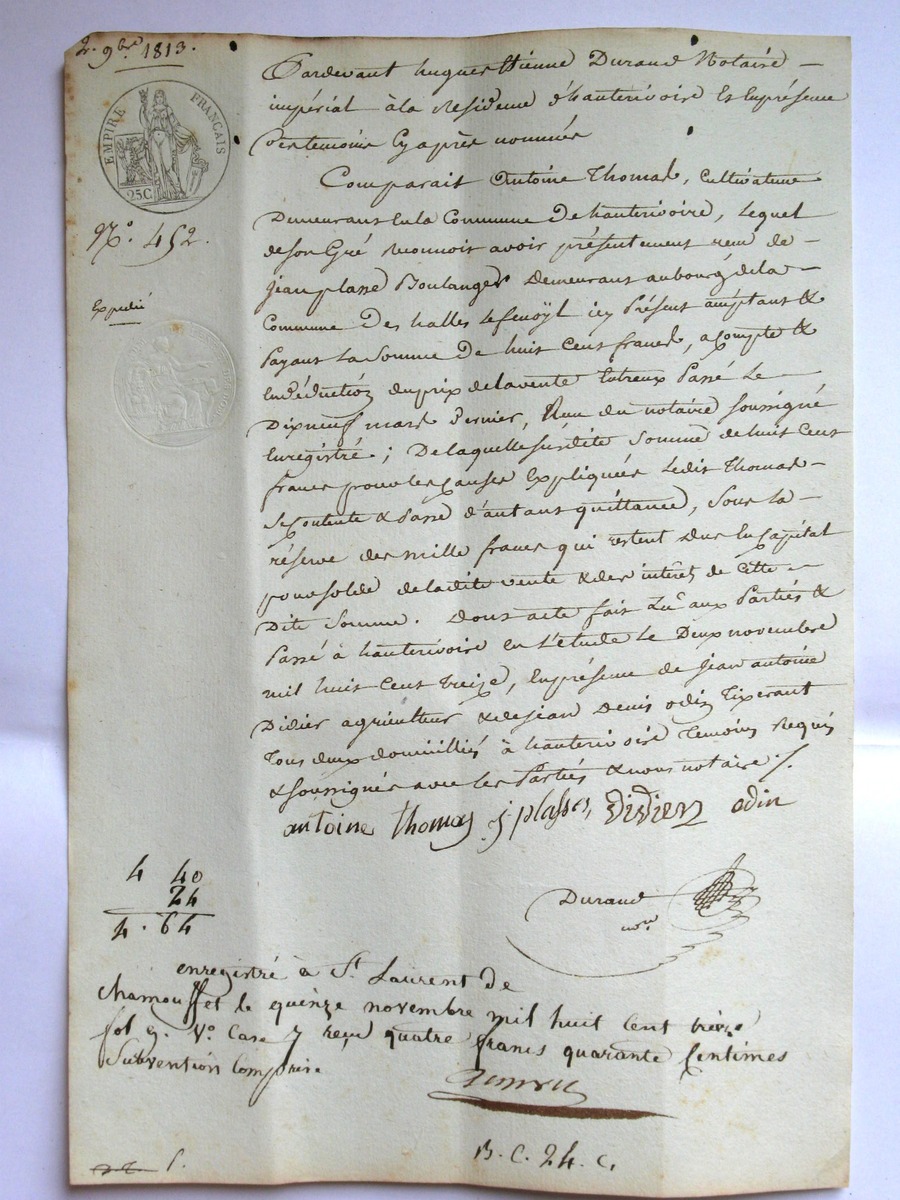 2. 9bre 1813.
EMPIRE FRANÇAIS
25C
No. 452.
Expédié
Pardevant hugues Etienne Durand Notaire
impérial à la Residence d'hauterivoire & En présence
Des temoins Cy après nommés
Comparait Antoine Thomas, Cultivateur
Demeurant En la Commune De hauterivoire, Lequel
de son Gré reconnoit avoir présentement reçu de
jean plasse Boulanger Demeurant au bourg de la
Commune Des halles Lefenoÿl icy Présent acceptant &
Payant La Somme De huit Cent francs, a Compte &
En déduction du prix de la vente Entreux Passé Le
Dix neuf mars Dernier, Reçu du notaire soussigné
Enregistré; De laquelle susdite Somme de huit Cent
francs pour les causes Expliquées Ledit Thomas
Se Contente & Passe d'autant quittance, Sous la
réserve des mille francs qui restent Dus En Capital
pour solde de ladite vente & des interêts de Cette
Dite Somme. Dont acte fait Lû aux Parties &
Passé à hauterivoire en L'étude Le Deux novembre
mil huit Cent treize, En présence de jean antoine
Didier agriculteur & de jean Denis odin Tixerant
Tous deux domiciliés à hauterivoire Temoins Requis
& soussignés avec les Parties & nous notaire ./.
antoine thomas j plasse, Didier odin
Durand
nore
4 40
24
4. 64
enregistré à St. Laurent de
chamousset le quinze novembre mil huit Cent treize
fol 9. Vo. Case 7 reçu quatre francs quarante Centimes
Subvention Comprise
B. C. 24. c.